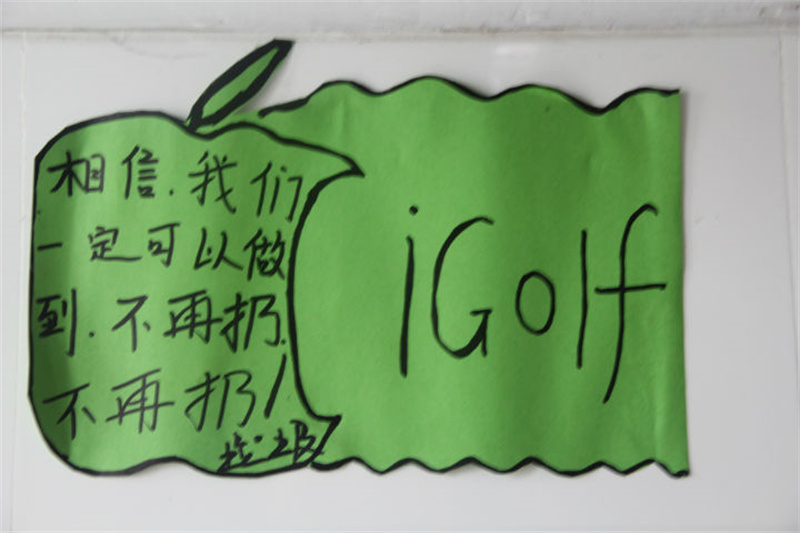 相信.我们
一定可以做
到.不再扔.
不再扔!
垃圾
iGolf